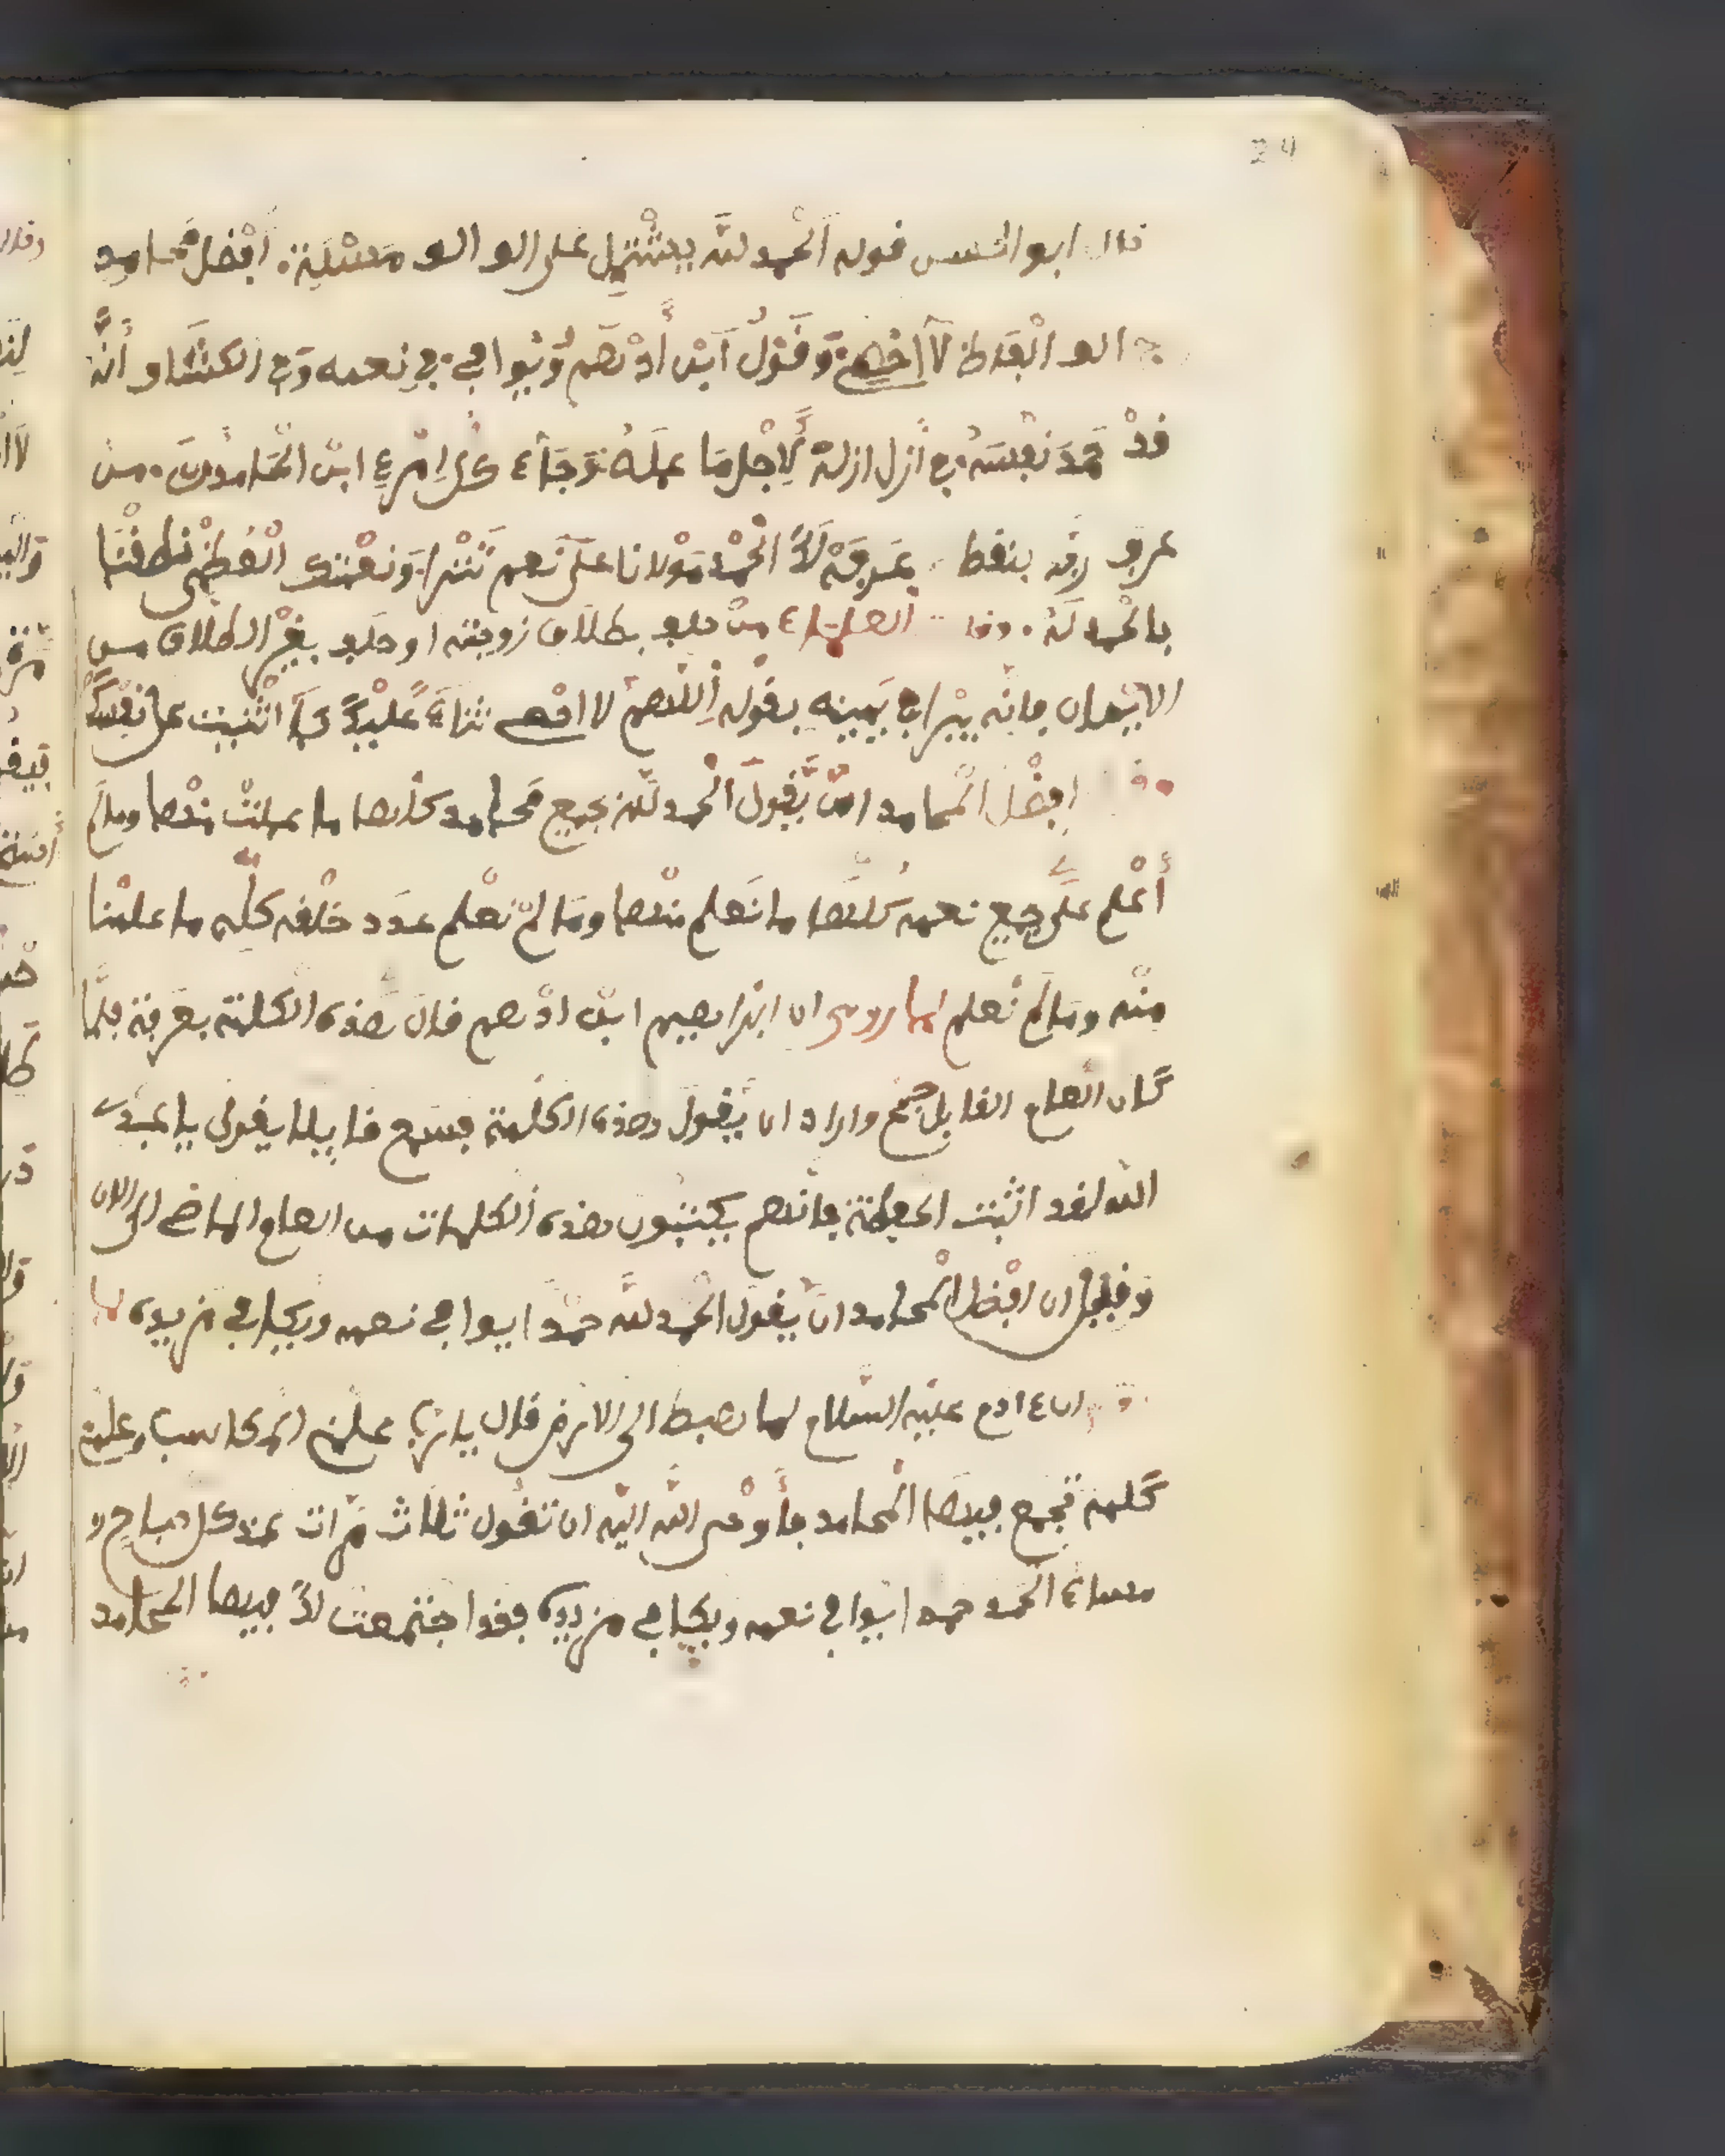 24
قال ابو الحسن قوله اَلحمد لله يشْتمل على الو الو مَسْئلة. اَفْضل محامد
الو اَلْقَط لاَ اخصے وَقَوْلُ اَبْن أدْهَم يُوَافي في نِعمه وَفي الكشَّاف أنَّه
قدْ حمدَ نَفْسَهُ في أزل ازله لِاَجْل مَا عَمله وَجَاء كل اِمْرئ ابن الحَامدون. من
عرف بنقط مَوْلانا على نِعم تَتْرا. وَنعْمتك الْعظمى
بالحمد له. العلماء منْ حلف بطلاق زوجته او حلف بغيْر الطلاق من
الايْمان فانه يبْرا في يَمينه بقوله اللهمَّ لا احْصے ثناءً عليْكَ كمَا اثْنيت على نفْسكَ
افْضل الْمحامد انْ يَّقُولَ الْحمد للَّه بجميع مَحامد كلها ما علمْتْ منْها ومالمَ
أعْلم علَى جميع نعمه كُلّها ما نَعلم منْها ومَا لمْ نعْلم عدَد خلْقه كلِّه ما علمْنا
منْه ومَا لَمْ نعلم لما روى ان ابْراهيم ابن ادْهم قال هَذه الكلمة بعَرفة فلمَّا
كَان العام القابل حج واراد ان يَّقول هذه الكلمة فسَمع قايلا يقول يا عبْدَ
الله لقد اتْعبت الحفظة فانهم يكتبُون هذه الكلمات من العام الماضے الى الان
وَقيل ان افْضل الْمحامد انْ يَّقول الْحمد للَّه حمْدًا يوافي نعمه ويكافي مزيده لما
ان ءادم عليْه السَّلام لما هبط الى الارض قال يا ربّ علمْنے المكاسب وعلمْنے
كَلمة تجْمع فيها الْمحامد فأوْحى الله اليْه ان تقُول ثلاث مرَّات عند كل صباح و
مساء الحمد حمدا يوافي نعمه ويكافي مزيده فقد اجْتمعت لكَ فيها المحامد